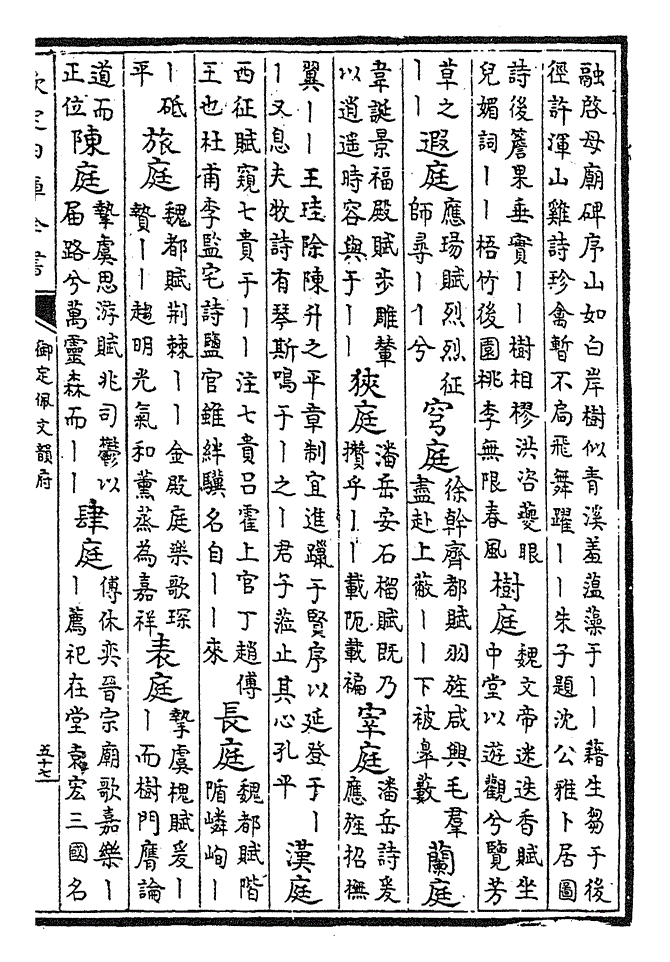 融啓母廟碑序山如白岸樹似青溪羞蘊藻于丨丨藉生芻于後
徑許渾山雞詩珍禽暫不扃飛舞躍丨丨朱子題沈公雅卜居圖
詩後簷果垂實丨丨樹相樛洪咨夔眼
兒媚詞丨丨梧竹後園桃李無限春風
樹庭
魏文帝迷迭香賦坐
中堂以遊觀兮覽芳
草之
丨丨
遐庭
應瑒賦烈烈征
師尋丨丨兮
穹庭
徐幹齊都賦羽旌咸興毛羣
盡赴上蔽丨丨下被皋藪
蘭庭
韋誕景福殿賦步雕輦
以逍遥時容與于丨丨
狹庭
潘岳安石榴賦既乃
攢乎丨丨載阨載褊
宰庭
潘岳詩爰
應旌招撫
翼丨丨王珪除陳升之平章制宜進躐于賢序以延登于丨
丨又息夫牧詩有琴斯鳴于丨之丨君子蒞止其心孔平
漢庭
西征賦窺七貴于丨丨注七貴吕霍上官丁趙傅
王也杜甫李監宅詩鹽官雖絆驥名自丨丨來
長庭
魏都賦階
陏嶙峋丨
丨砥
平
旅庭
魏都賦荆棘丨丨金殿庭樂歌琛
贄丨丨趙明光氣和薰蒸為嘉祥
表庭
摯虞槐賦爰丨
丨而樹門膺論
道而
正位
陳庭
摯虞思游賦兆司鬱以
届路兮萬靈森而丨丨
肆庭
傅休奕晉宗廟歌嘉樂丨
丨薦祀在堂袁宏三國名
欽定四庫全書
御定佩文韻府
五十七